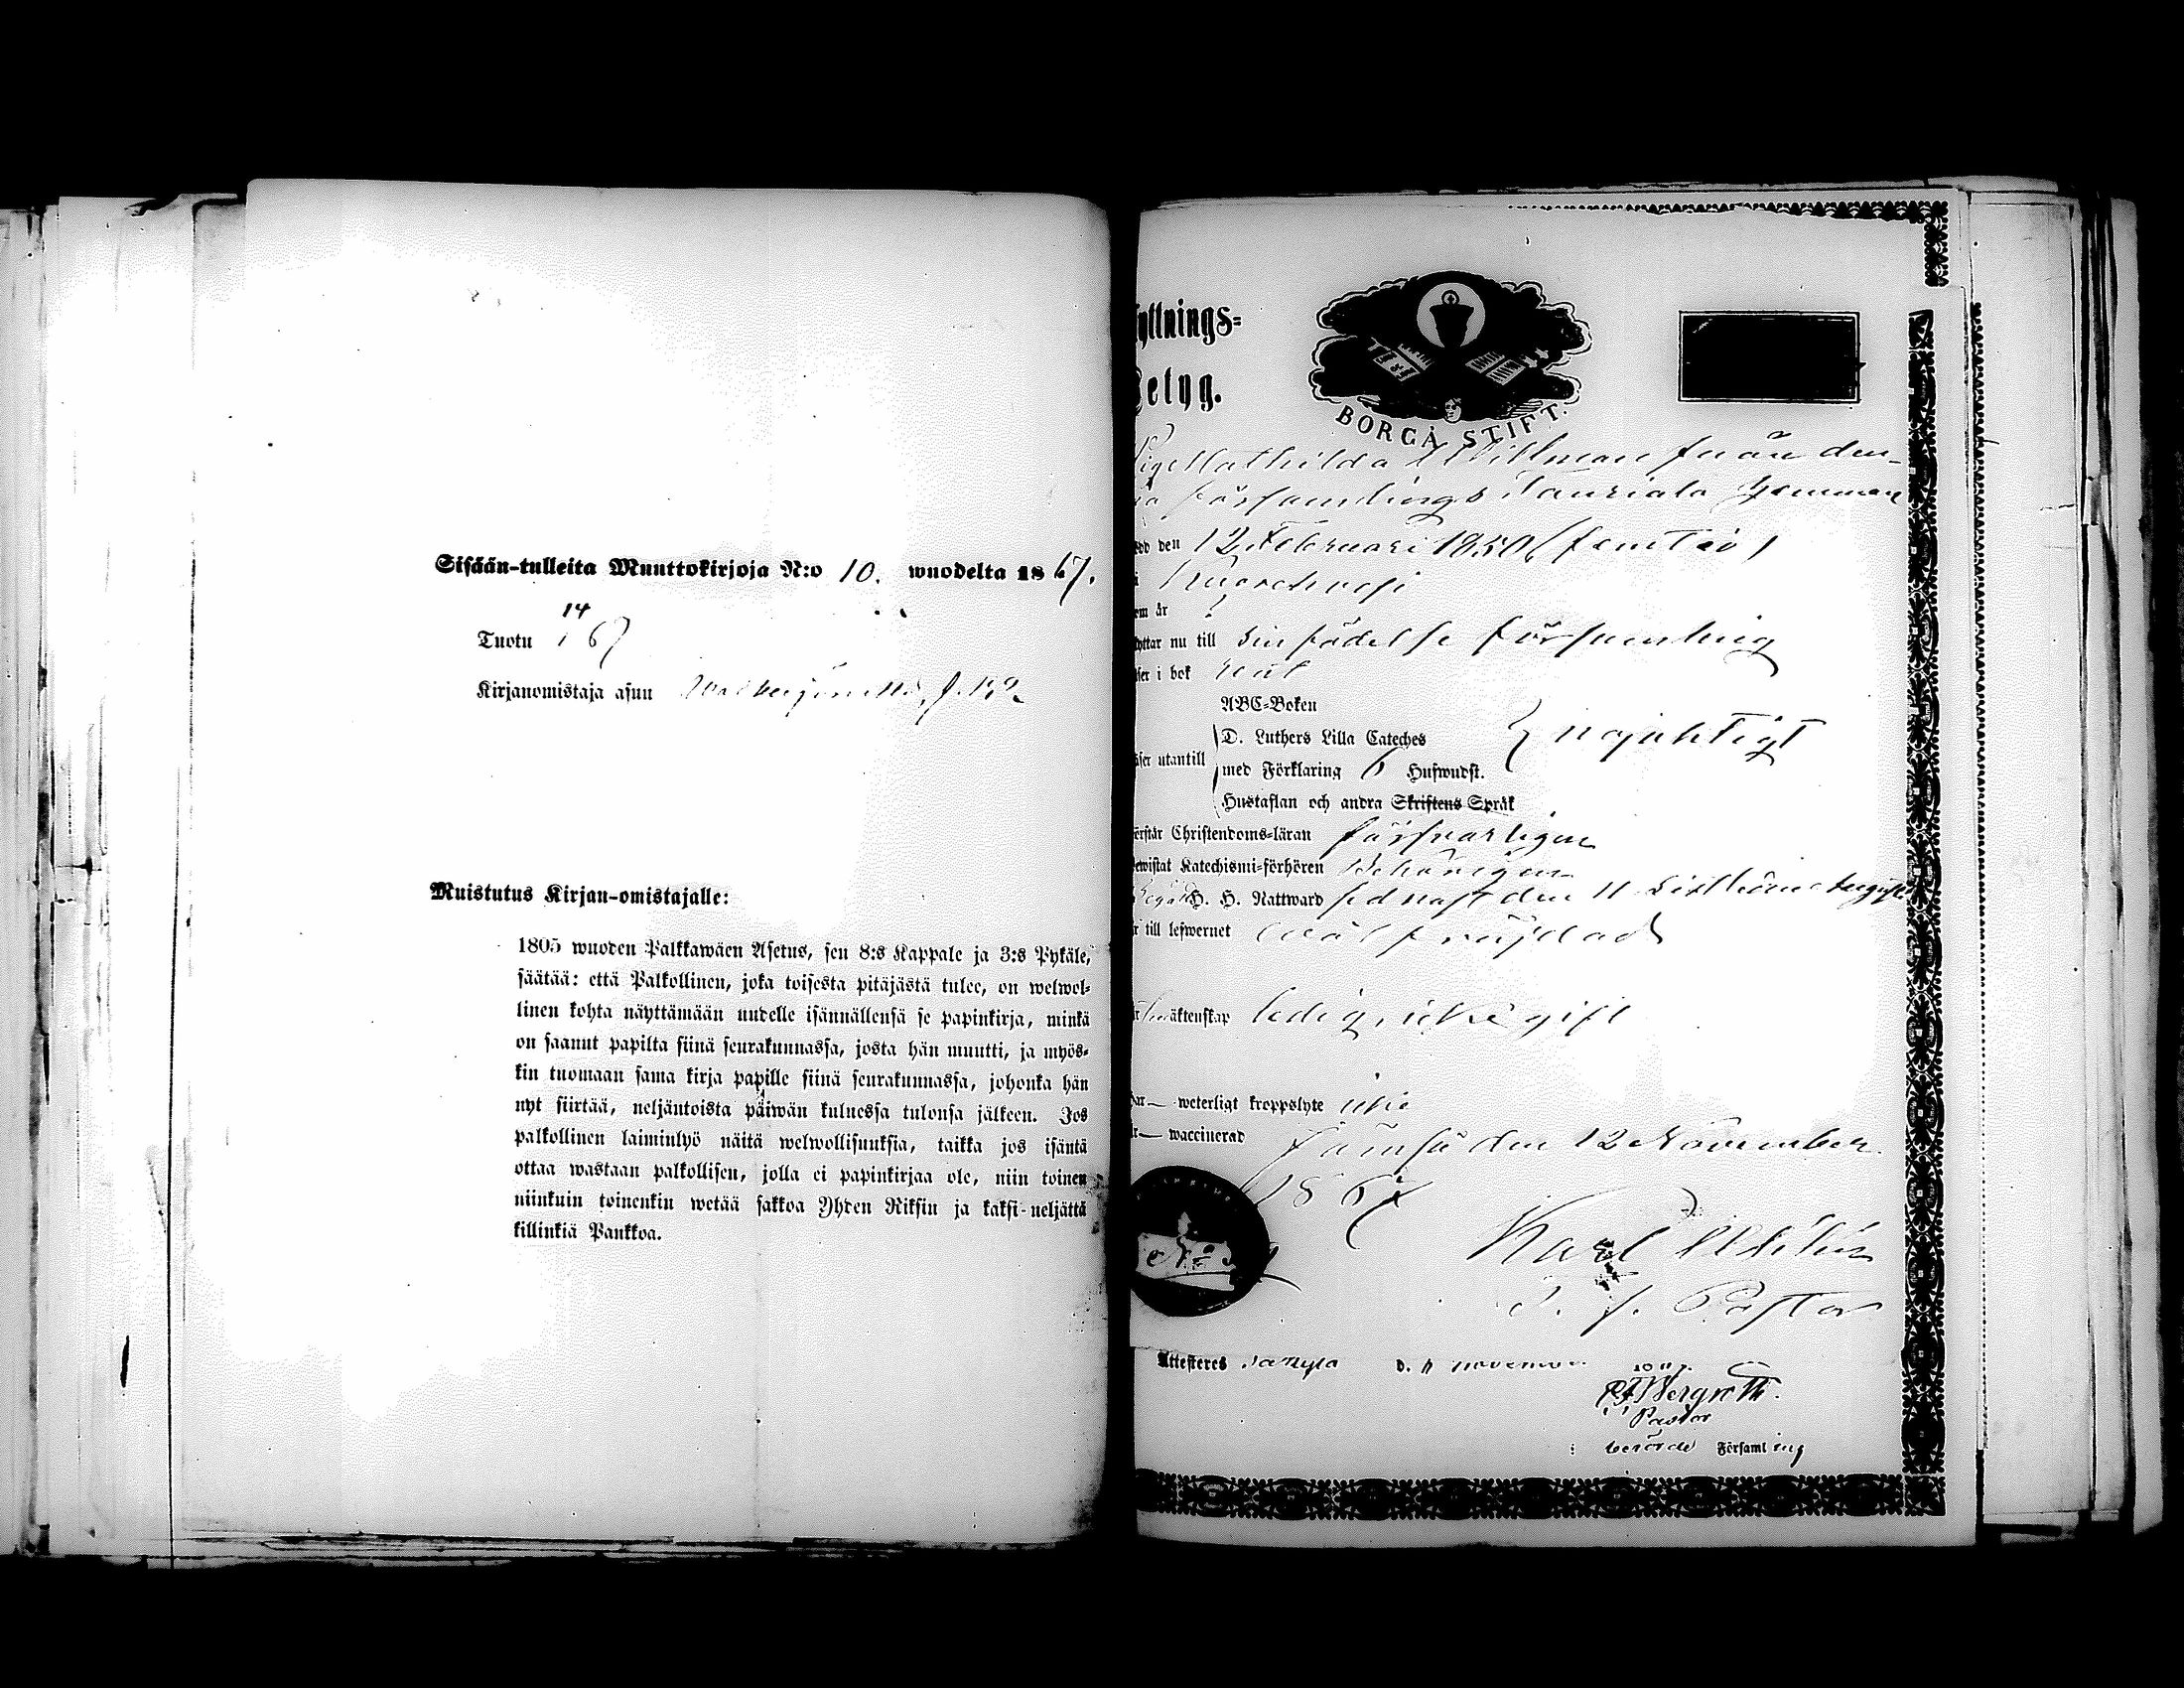 Sisään-tulleita Muuttokirjoja N:o 10. wuodelta 1867.
Tuotu 14 1 67
Kirjanomistaja asuu
Muistutus Kirjan-omistajalle:
1805 wuoden Palkkawäen Asetus, sen 8:s Kappale ja 3:s Pykäle,
säätää: että Palkollinen, joka toisesta pitäjästä tulee, on welwol-
linen kohta näyttämään uudelle isännällensä se papinkirja, minkä
on saanut papilta siinä seurakunnassa, josta hän muutti, ja myös-
kin tuomaan sama kirja papille siinä seurakunnassa, johonka hän
nyt siirtää, neljäntoista päiwän kuluessa tulonsa jälkeen. Jos
palkollinen laiminlyö näitä welwollisuuksia, taikka jos isäntä
ottaa wastaan palkollisen, jolla ei papinkirjaa ole, niin toinen
niinkuin toinenkin wetää sakkoa Yhden Riksin ja kaksi-neljättä
killinkiä Pankkoa.
yttnings-
Betyg.
BORGÅ STIFT.
Mathilda Willman från den-
na församlings hemman
född den 12 Februari 1850 (femtio)
i
em år
yttar nu till sin födelse församling
äser i bok
ABC-Boken
D. Luthers Lilla Cateches } nöjaktigt
äser utantill
med Förklaring 6 Hufwudst.
Hustaflan och andra Skriftens Språk
örstår Christendoms-läran försvarligen
ewistat Katechismi-förhören Behörigen
Begått H. H. Nattward sednast den 11 sistlidne Augusti
r till lefwernet wälfrejdad
äktenskap ledig, icke gift
ar — weterligt kroppslyte icke
r — waccinerad
Jämsä den 12 November
1867
Karl
T. f. Pastor
Attesteres d. 11 november
Bergroth.
Pastor
i berörde Församling